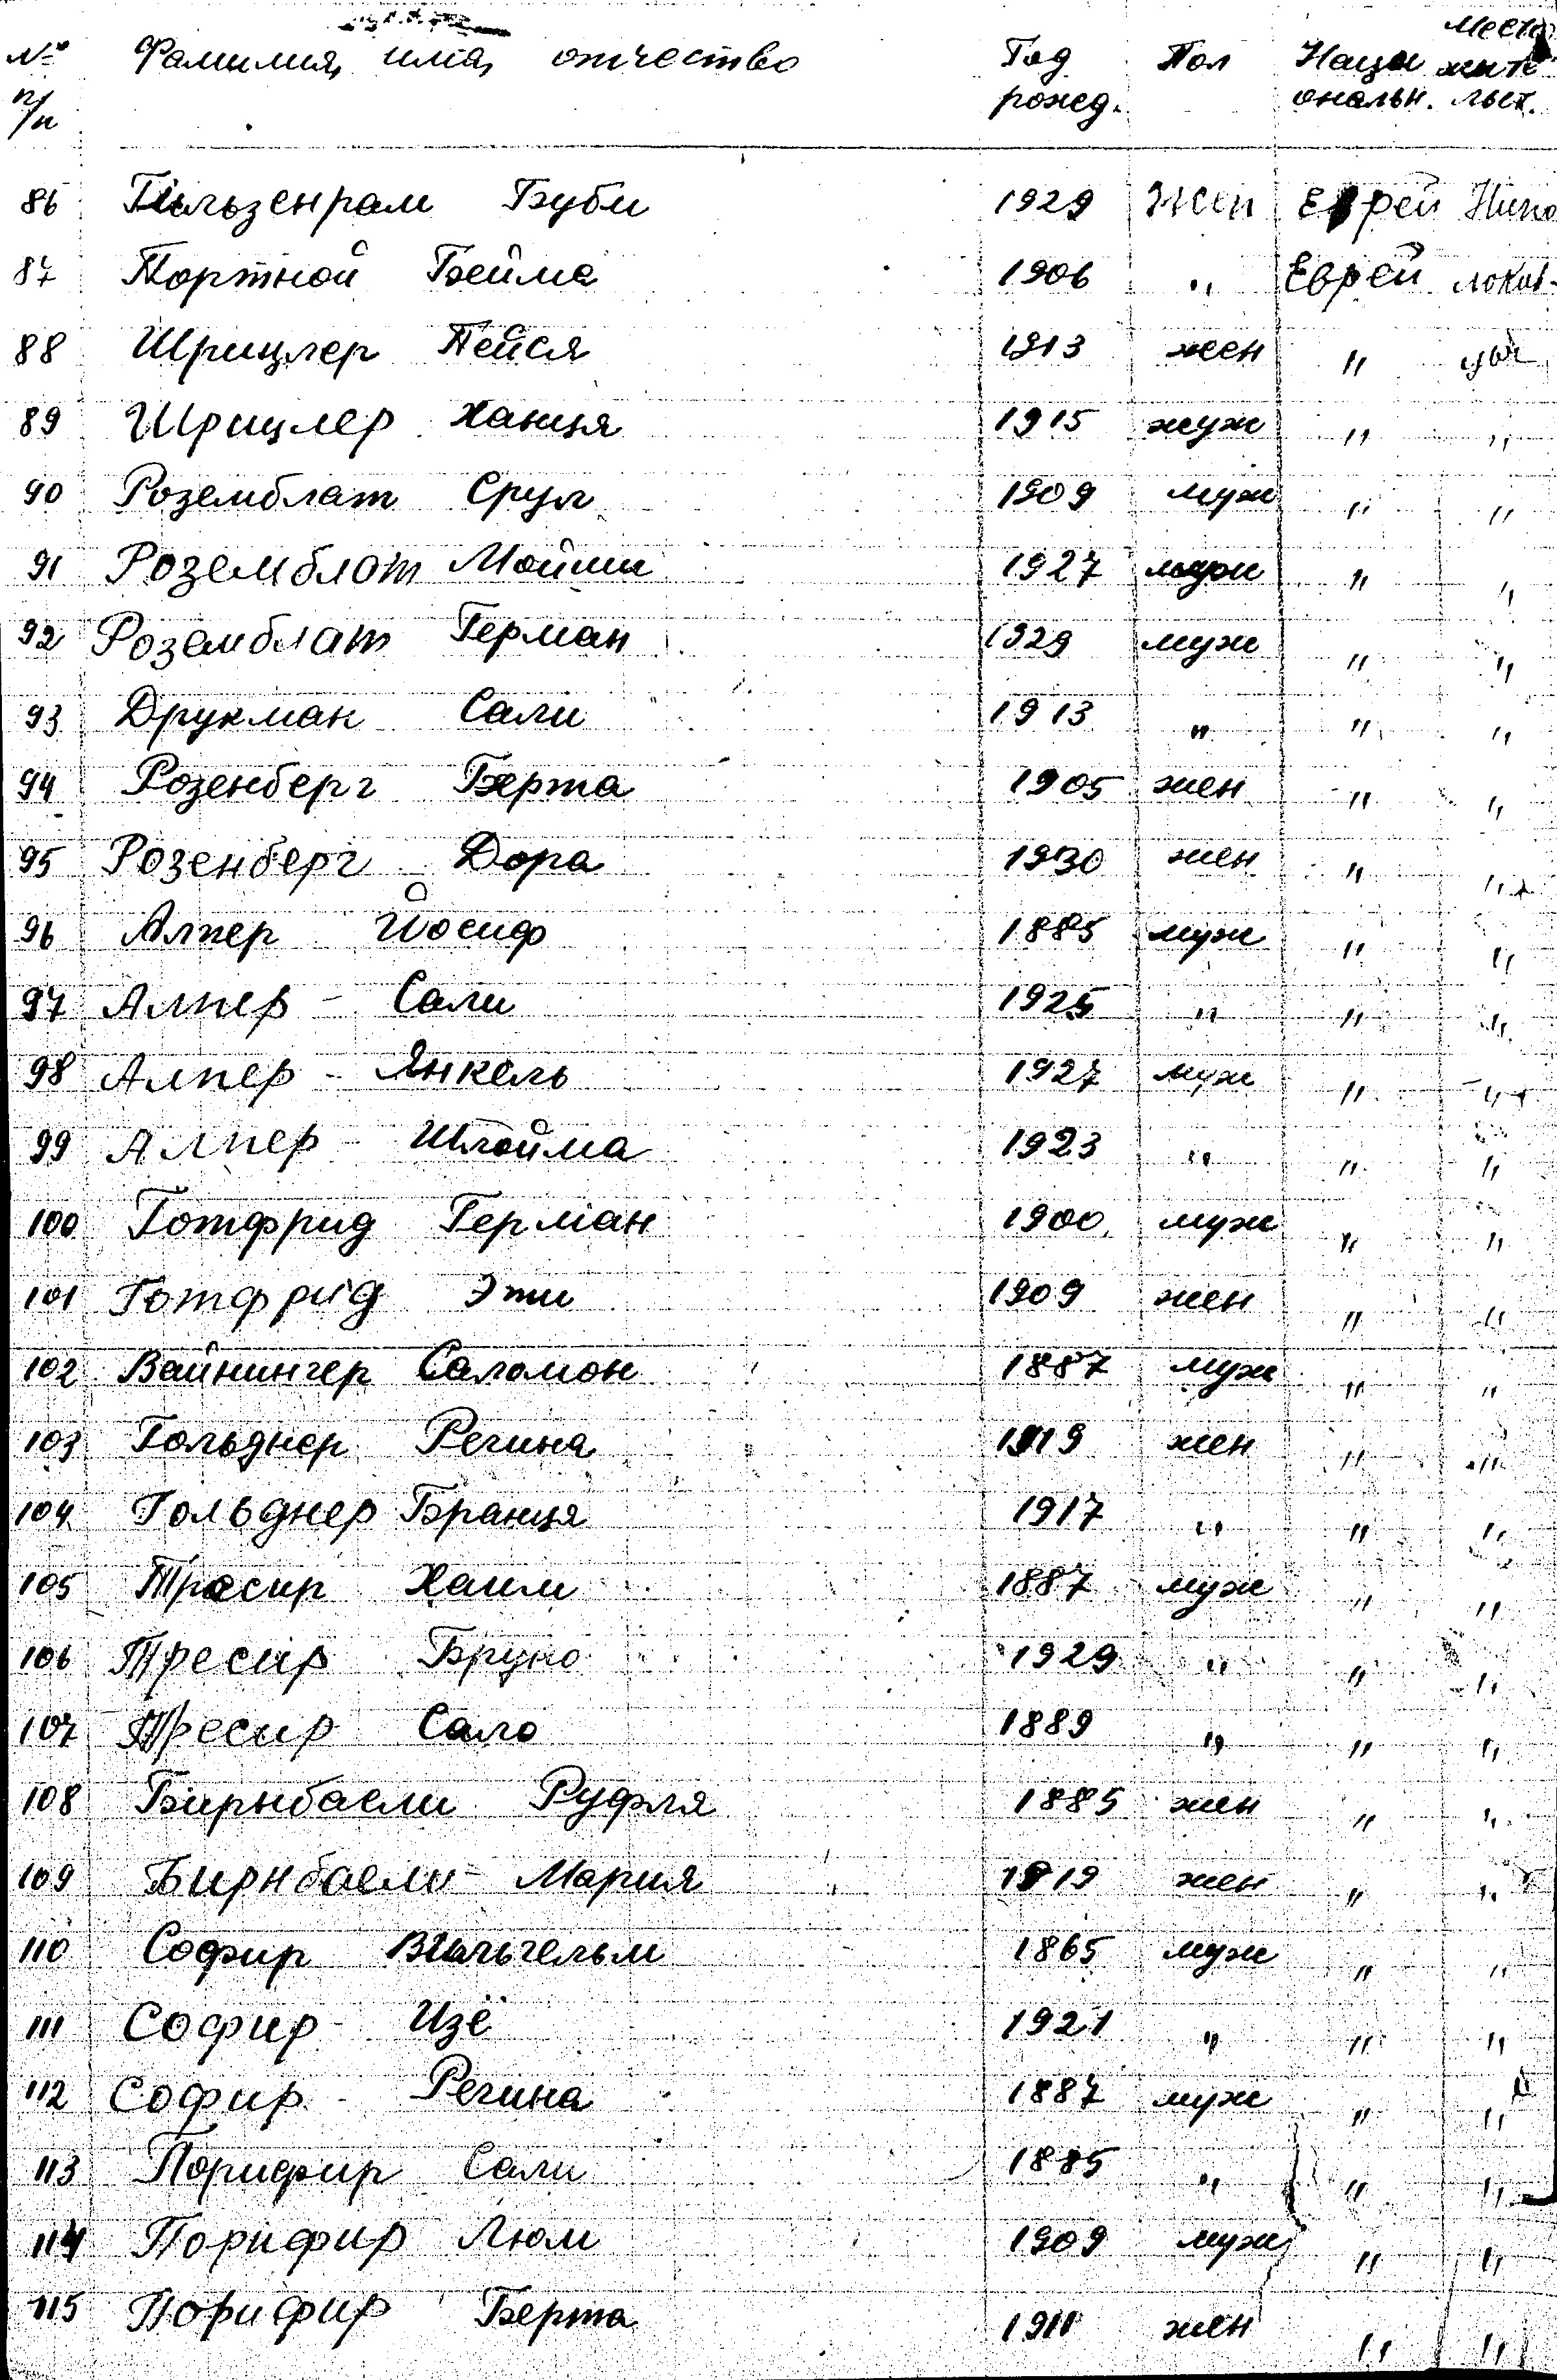 № п/н Фамилия, имя, отчество Год рожд. Пол Национальн. Место жительст.
86 Гильзенрам Буби 1929 Жен Еврей Нипо
87 Портной Бейма 1906 " Еврей локив-
88 Шрицлер Пейся 1913 жен "
89 Шрицлер Ханця 1915 муж " "
90 Роземблат Срул 1909 муж " "
91 Роземблат Мойши 1927 муж " "
92 Роземблат Герман 1929 муж " "
93 Друкман Сали 1913 " " "
94 Розенберг Берта 1905 жен " "
95 Розенберг Дора 1930 жен " "
96 Алпер Йосиф 1885 муж " "
97 Алпер - Сали 1925 " " "
98 Алпер - Янкель 1927 муж " "
99 Алпер - Шлойма 1923 " " "
100 Готфрид Герман 1900 муж " "
101 Готфрид Эти 1909 жен " "
102 Вайнингер Саломон 1887 муж " "
103 Гольднер Регина 1919 жен " "
104 Гольднер Бранця 1917 " " "
105 Тресир Хаим 1887 муж " "
106 Тресир Бруно 1929 " " "
107 Тресир Сало 1889 " " "
108 Бирнбаели Руфля 1885 жен " "
109 Бирнбаели - Мария 1919 жен " "
110 Софир Вильгельм 1865 муж " "
111 Софир - Изё 1921 " " "
112 Софир - Регина 1887 муж " "
113 Порифир Сали 1885 " " "
114 Порифир Люм 1909 муж " "
115 Порифир Берта 1911 жен " "